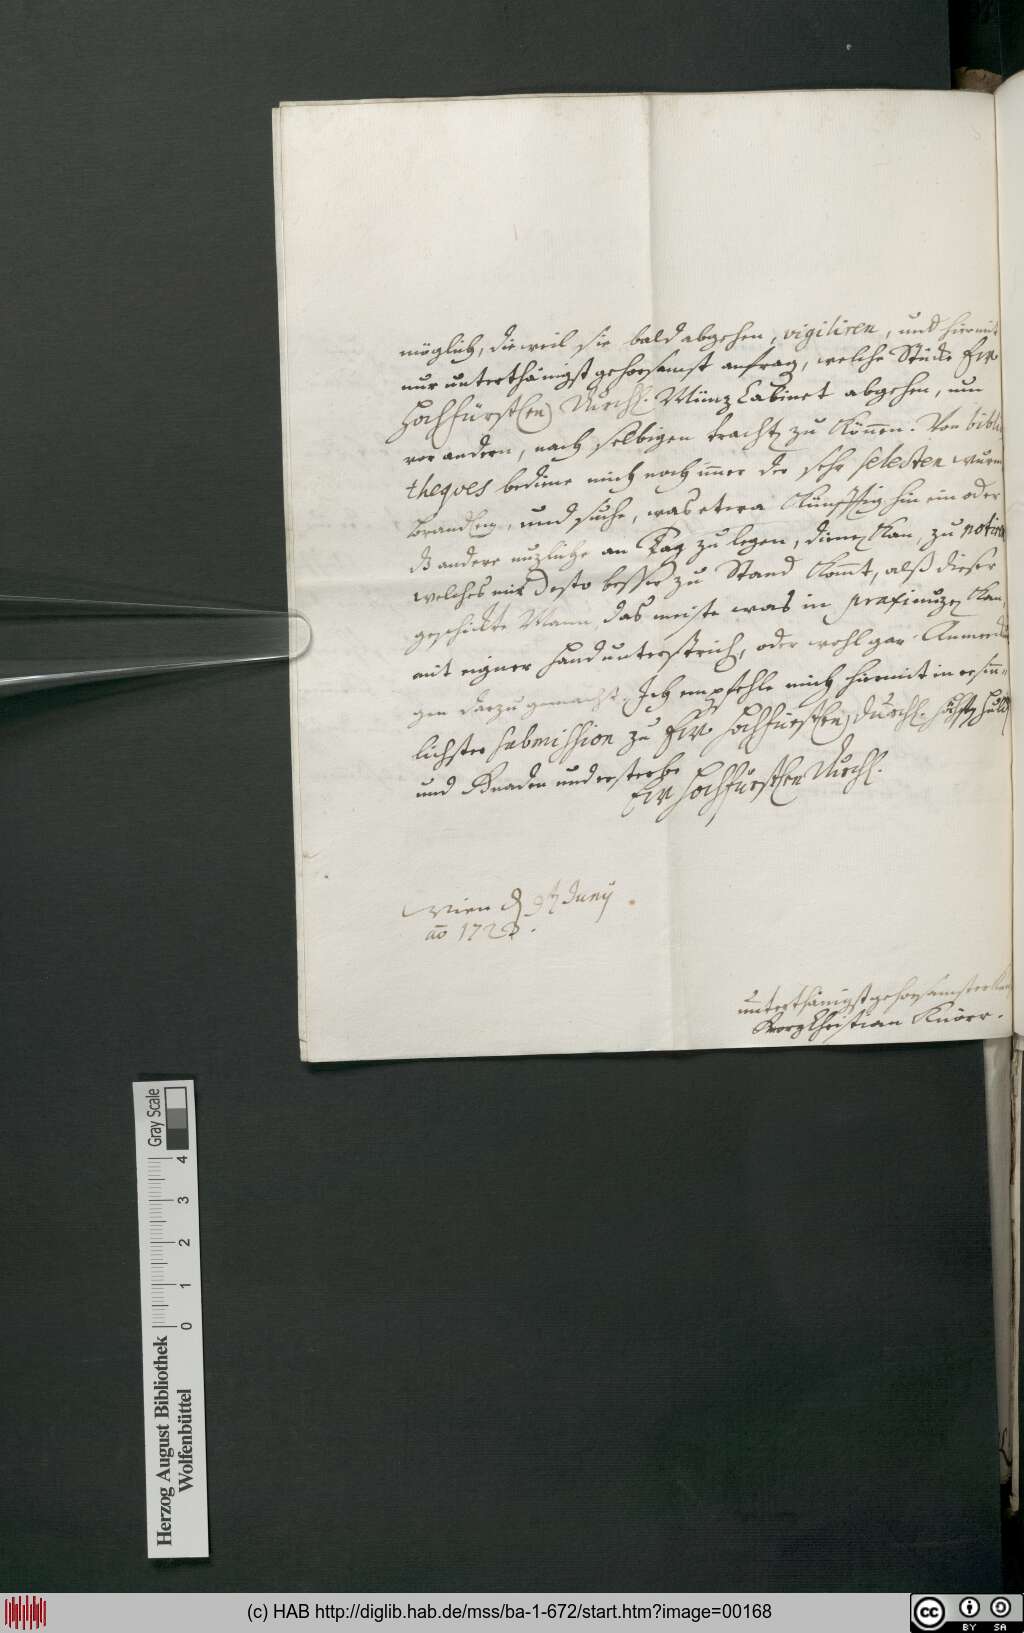 möglich, dieweil sie bald abgehen, vigiliren, und hiermit
nur unterthänigst gehorsamst anfrag, welche Stücke Ew
Hochfürstlen Durchl. Münz Cabinet abgehen, um
vor andern, nach selbigen tracht zu können. Von biblio
theqves bediene mich noch im̅er der sehr selesten
und suche, was etwa künfftig hin ein oder
dß andere nuzliche an Tag zu legen, dienen kan, zu notiren
welches mir desto besser zu Stand kom̅t, alß dieser
geschickte Mann, das meiste was in praxi nuzen kan,
mit eigner Hand unterstrich, oder wohl gar Anmerckun
gen darzu gemacht. Ich empfehle mich hiermit in
lichster submission zu Ew. Hochfürstlen Durchl. Huld
und Gnaden und ersterbe
Ew Hochfürstlen Durchl.
Wien d 9t Juny
ao 172
unterthänigst gehorsamster
Georg Christian Knörr.
Gray Scale
0 1 2 3 4
Herzog August Bibliothek
Wolfenbüttel
(c) HAB http://diglib.hab.de/mss/ba-1-672/start.htm?image=00168
cc BY SA